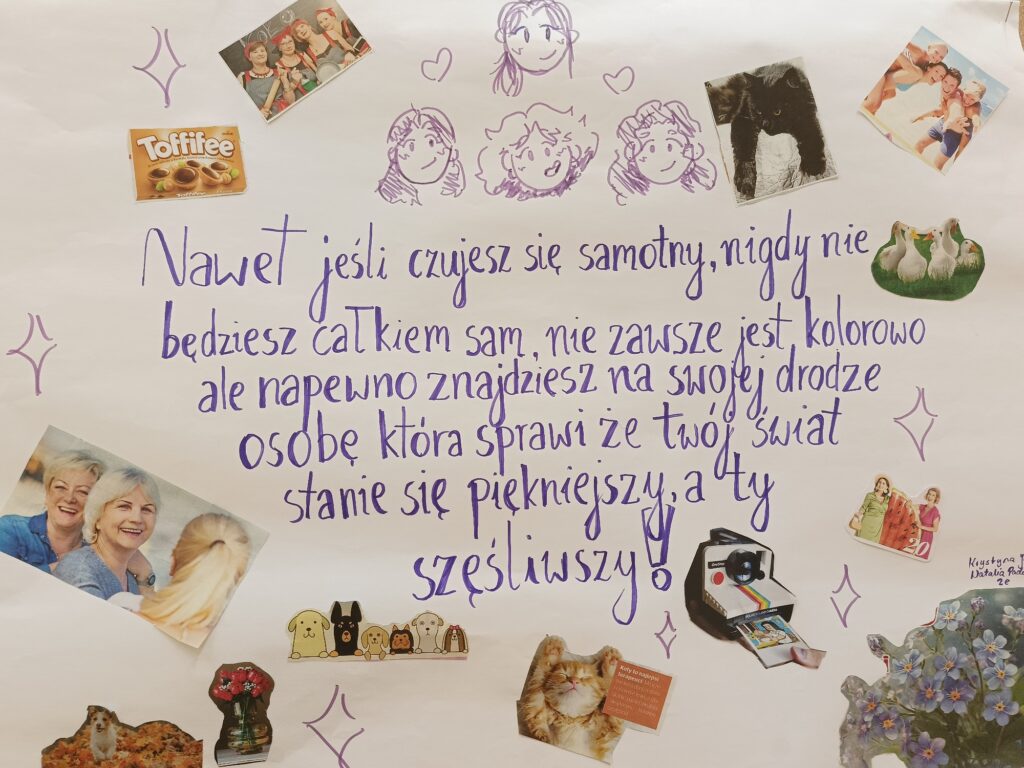 Toffifee
Nawet jeśli czujesz się samotny, nigdy nie
będziesz całkiem sam, nie zawsze jest kolorowo
ale napewno znajdziesz na swojej drodze
osobę która sprawi że twój świat
stanie się piękniejszy, a ty
szęśliwszy!
20
Krystyna
Natalia
2e
Koty to najlepsi
terapeuci